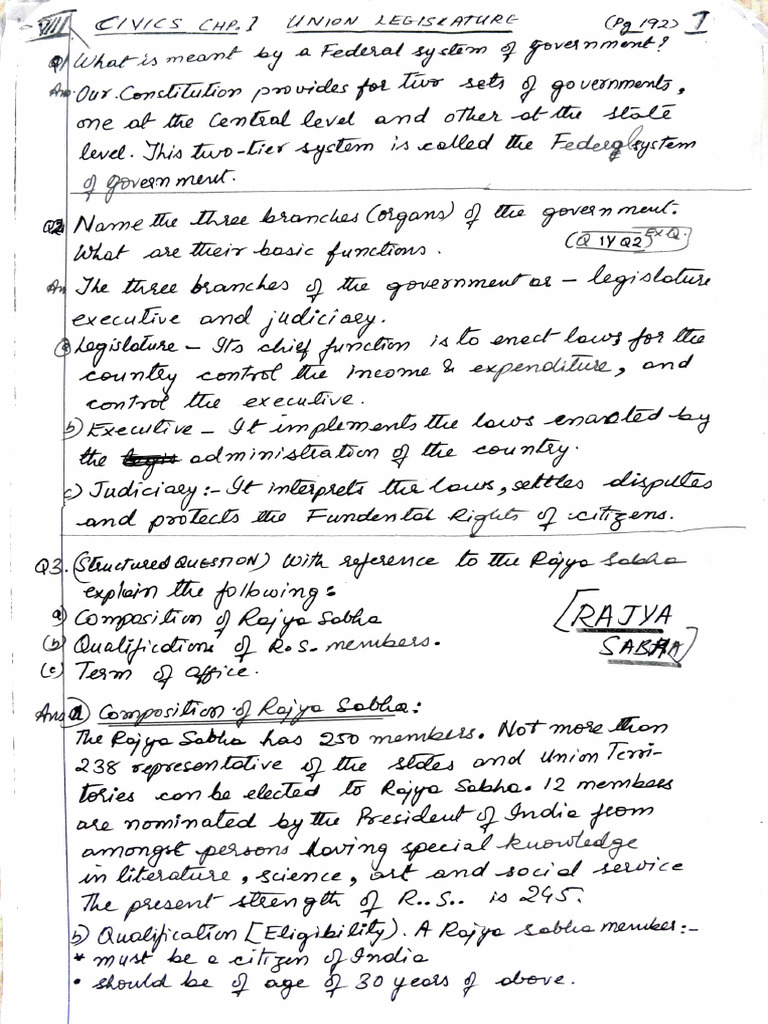 VIII CIVICS CHP. 1 UNION LEGISLATURE (Pg 192) 1
Q1 What is meant by a Federal system of government?
Ans. Our Constitution provides for two sets of governments,
one at the Central level and other at the state
level. This two-tier system is called the Federal system
of government.
Q2 Name the three branches (organs) of the government.
What are their basic functions. (Q 1Y Q2) Ex Q.
An The three branches of the government ar – legislature
executive and judiciary.
a) Legislature – Its chief function is to enect laws for the
country control the income & expenditure, and
control the executive.
b) Executive – It implements the laws enacted by
the administration of the country.
c) Judiciary :– It interprets the laws, settles disputes
and protects the Fundental Rights of citizens.
Q3. (STRUCTURED QUESTION) With reference to the Rajya Sabha
explain the following:
a) Composition of Rajya Sabha [RAJYA
(b) Qualifications of R.S. members. SABHA]
(c) Term of office.
Ans a) Composition of Rajya Sabha:
The Rajya Sabha has 250 members. Not more than
238 representative of the states and Union Terri-
tories can be elected to Rajya Sabha. 12 members
are nominated by the President of India from
amongst persons having special knowledge
in literature, science, art and social service
The present strength of R..S.. is 245.
b) Qualification [Eligibility). A Rajya Sabha member:–
* must be a citizen of India
• should be of age of 30 years of above.